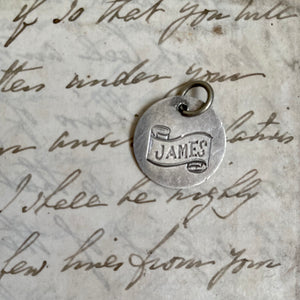 if to that you will
under your
JAMES
I shall be highly
few lines from your